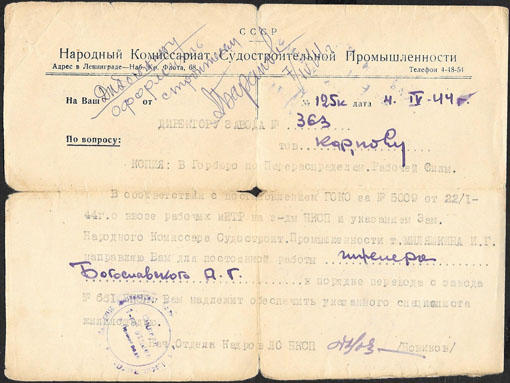 СССР
Народный Комиссариат Судостроительной Промышленности
Адрес в Ленинграде—Наб. Кр. Флота, 68
Телефон 4-48-54
оформить
На Ваш от № 125к дата 4. IV-44 г.
ДИРЕКТОРУ ЗАВОДА № 363
По вопросу: тов. Карпову
КОПИЯ: В Горбюро по Перераспределен. Рабочей Силы.
В соответствии с постановлением ГОКО за № 5009 от 22/I-
44г. о ввозе рабочих и ИТР на з-ды НКСП и указанием Зам.
Народного Комиссара Судостроит. Промышленности т. МИЛЯШКИНА И.Г.
направляю Вам для постоянной работы инженера
Богославского А. Г. в порядке перевода с завода
Вам надлежит обеспечить указанного специалиста
Нач. Отдела Кадров ЛО НКСП /Новиков/